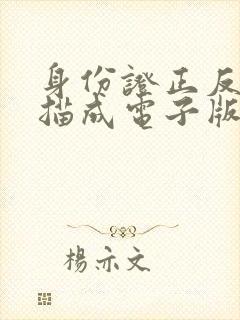 身份證正反
描成電子版
楊亦文